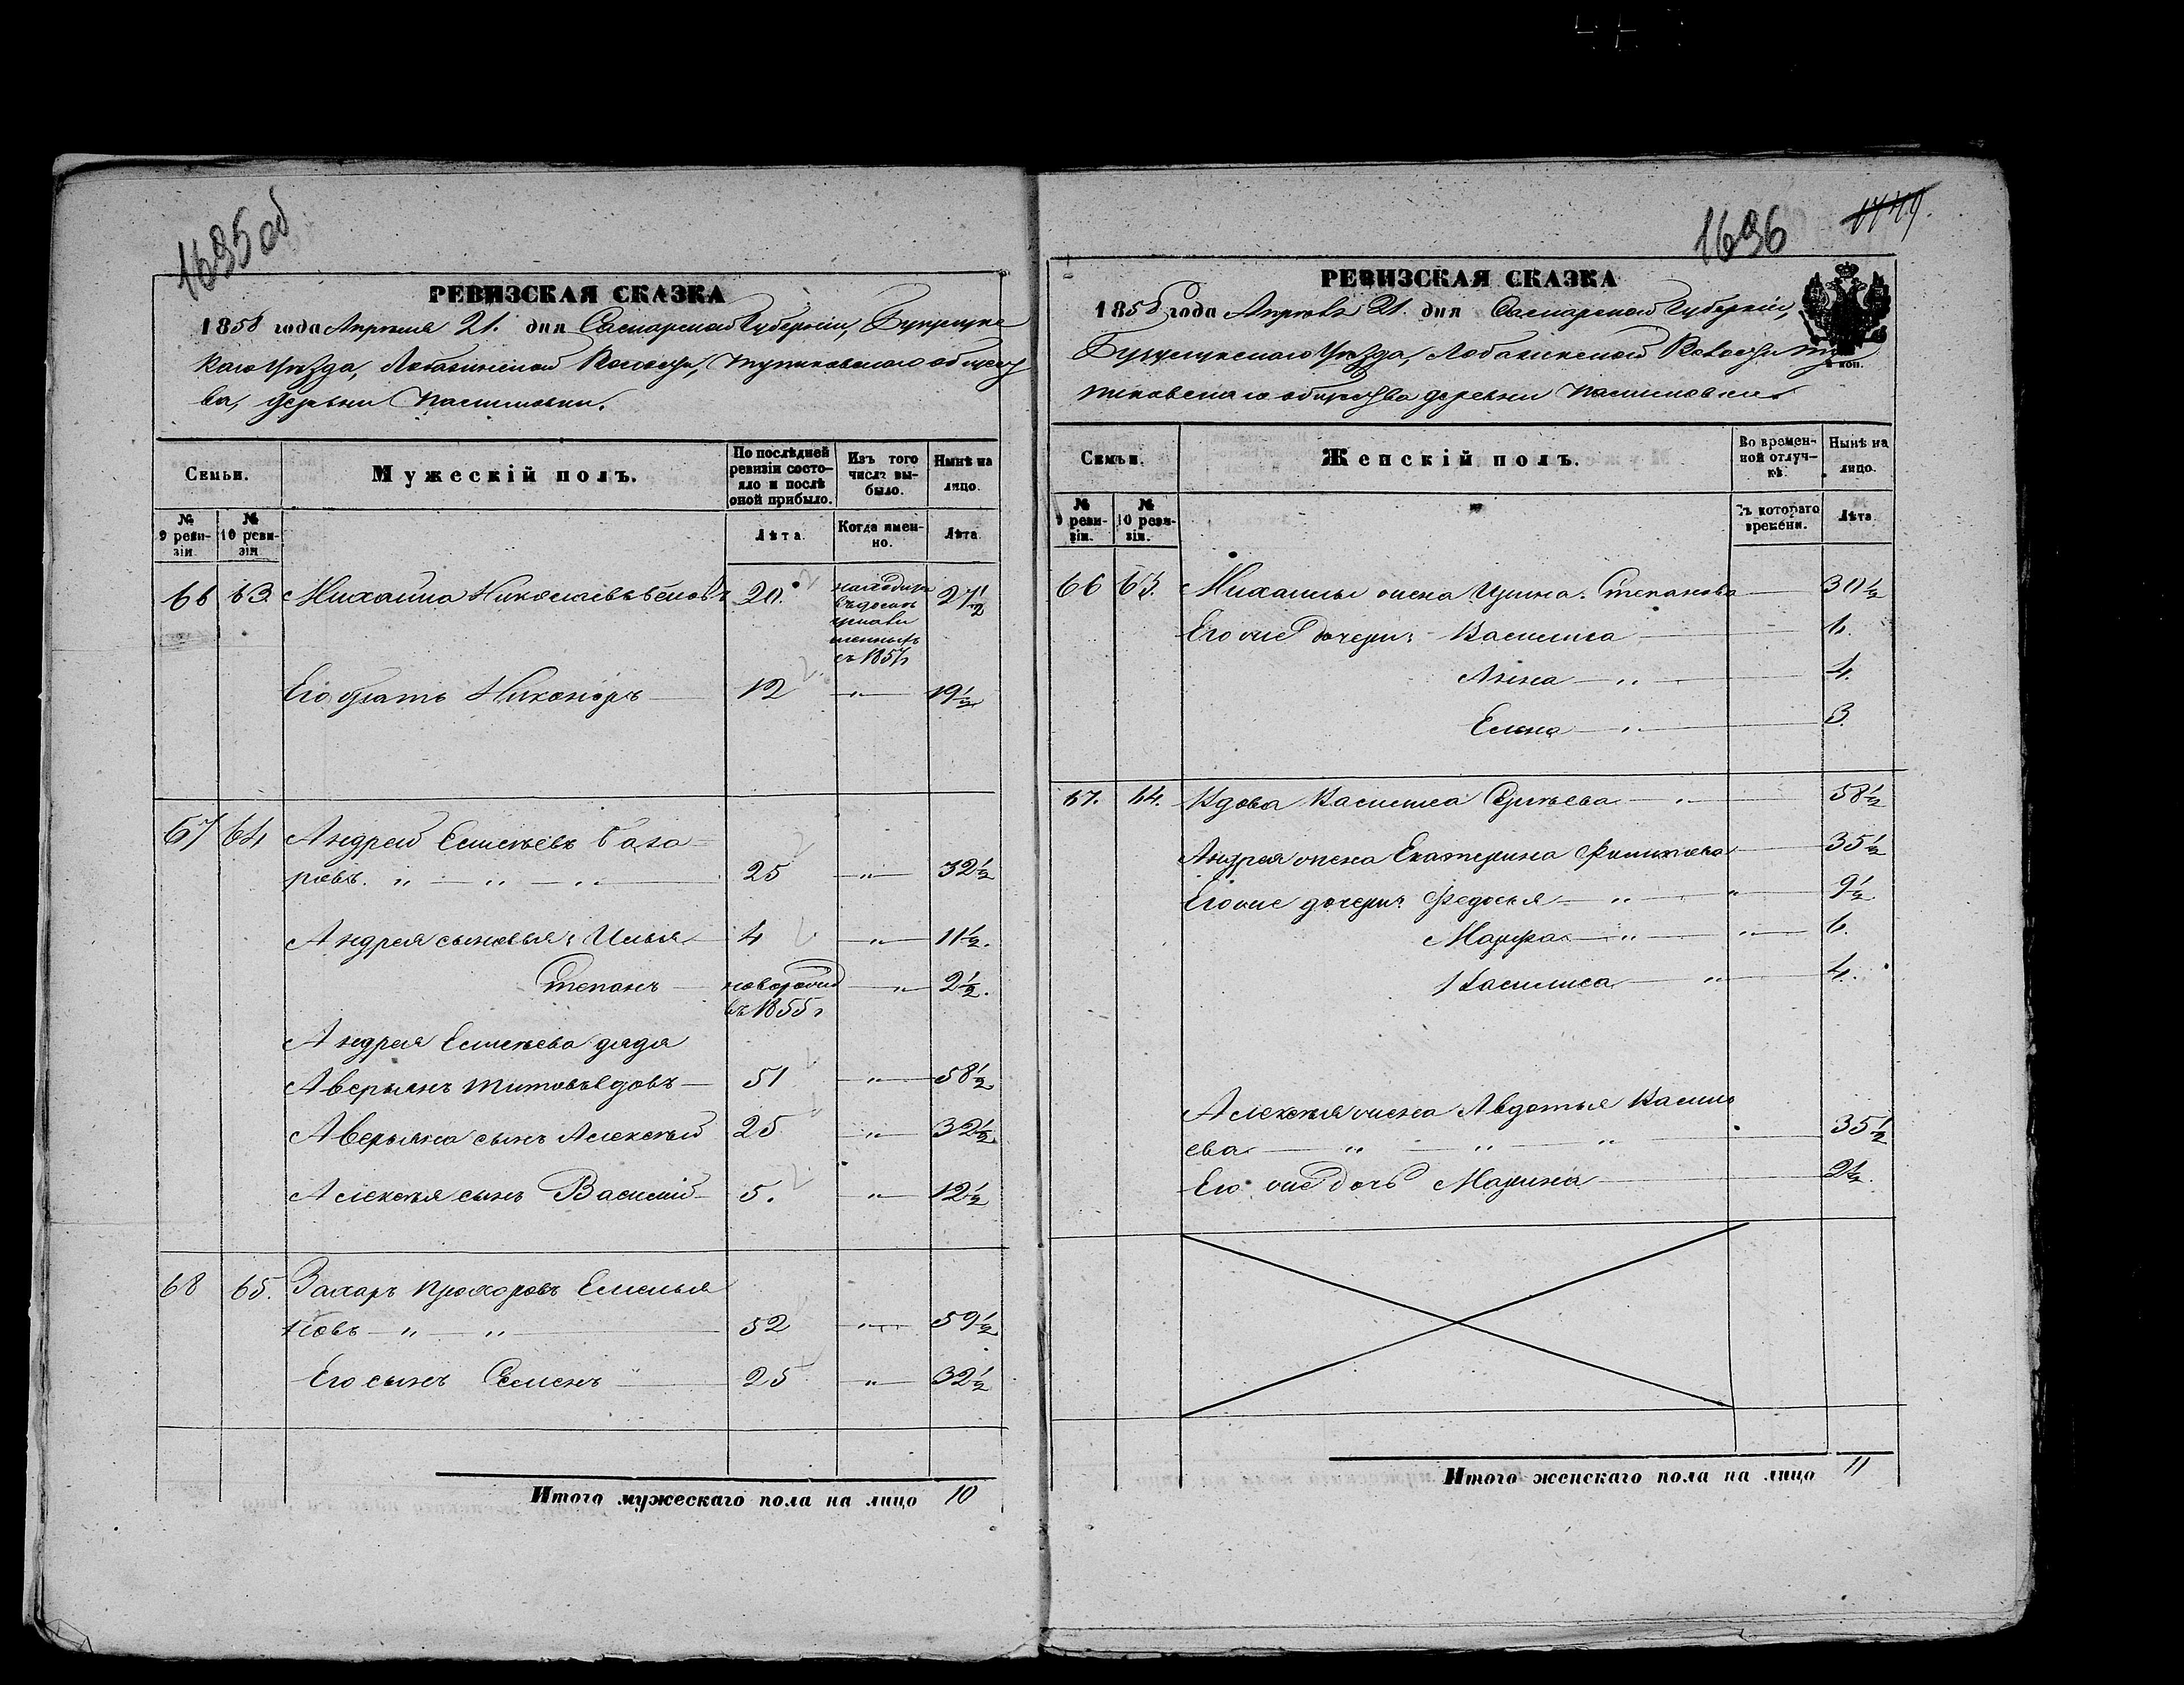 1695 об
РЕВИЗСКАЯ СКАЗКА
1858 года Апреля 21. дня Самарской Губерніи, Бузулукс
каго Уѣзда, Лобазинской Волости, общест
ва, деревни
Семьи.
Мужескій полъ.
По послѣдней ревизіи состояло и послѣ оной прибыло.
Изъ того числа выбыло.
Нынѣ на лицо.
№ 9 ревизіи.
№ 10 ревизіи
Лѣта.
Когда именно.
Лѣта.
66 63 Михайла Николаевъ 20. 27½
въ
съ 1857г
Его братъ Никоноръ 12 " 19½
67 64 Андрей Елисѣевъ База
ровъ. " " " 25 " 32½
Андрея сыновья: Илья 4 " 11½.
Степанъ новорожд " 2½.
въ 1855г
Андрея Елисѣева дядя
Аверьянъ Титовъ вдовъ 51 " 58½
Аверьяна сынъ Алексѣй 25 " 32½
Алексѣя сынъ Василій 5. " 12½
68 65. Захаръ Прохоровъ Емелья
новъ " " 52 " 59½
Его сынъ Семенъ 25 " 32½
Итого мужескаго пола на лицо 10
1696
1749.
РЕВИЗСКАЯ СКАЗКА
1858 года Апрѣля 21. дня Самарской Губерніи,
Бузулукскаго Уѣзда, Лобазинской Волости
общества деревни
коп.
Семьи.
Женскій полъ.
Во временной отлучкѣ.
Нынѣ на лицо.
№ 9 ревизіи.
№ 10 ревизіи.
Съ котораго времени.
Лѣта.
66 63. Михайлы жена Ирина Степанова 30½
Его же дочери: Василиса 6.
Анна " 4.
Елена " 3.
67. 64. Вдова Василиса Сергѣева " 58½
Андрея жена Екатерина Филипова 35½
Его же дочери: Федосья " " 9½
Марфа " " 6.
Василиса " 4.
Алексѣя жена Авдотья Василь
ева " " " 35½
Его же дочь Марина 2½.
Итого женскаго пола на лицо 11